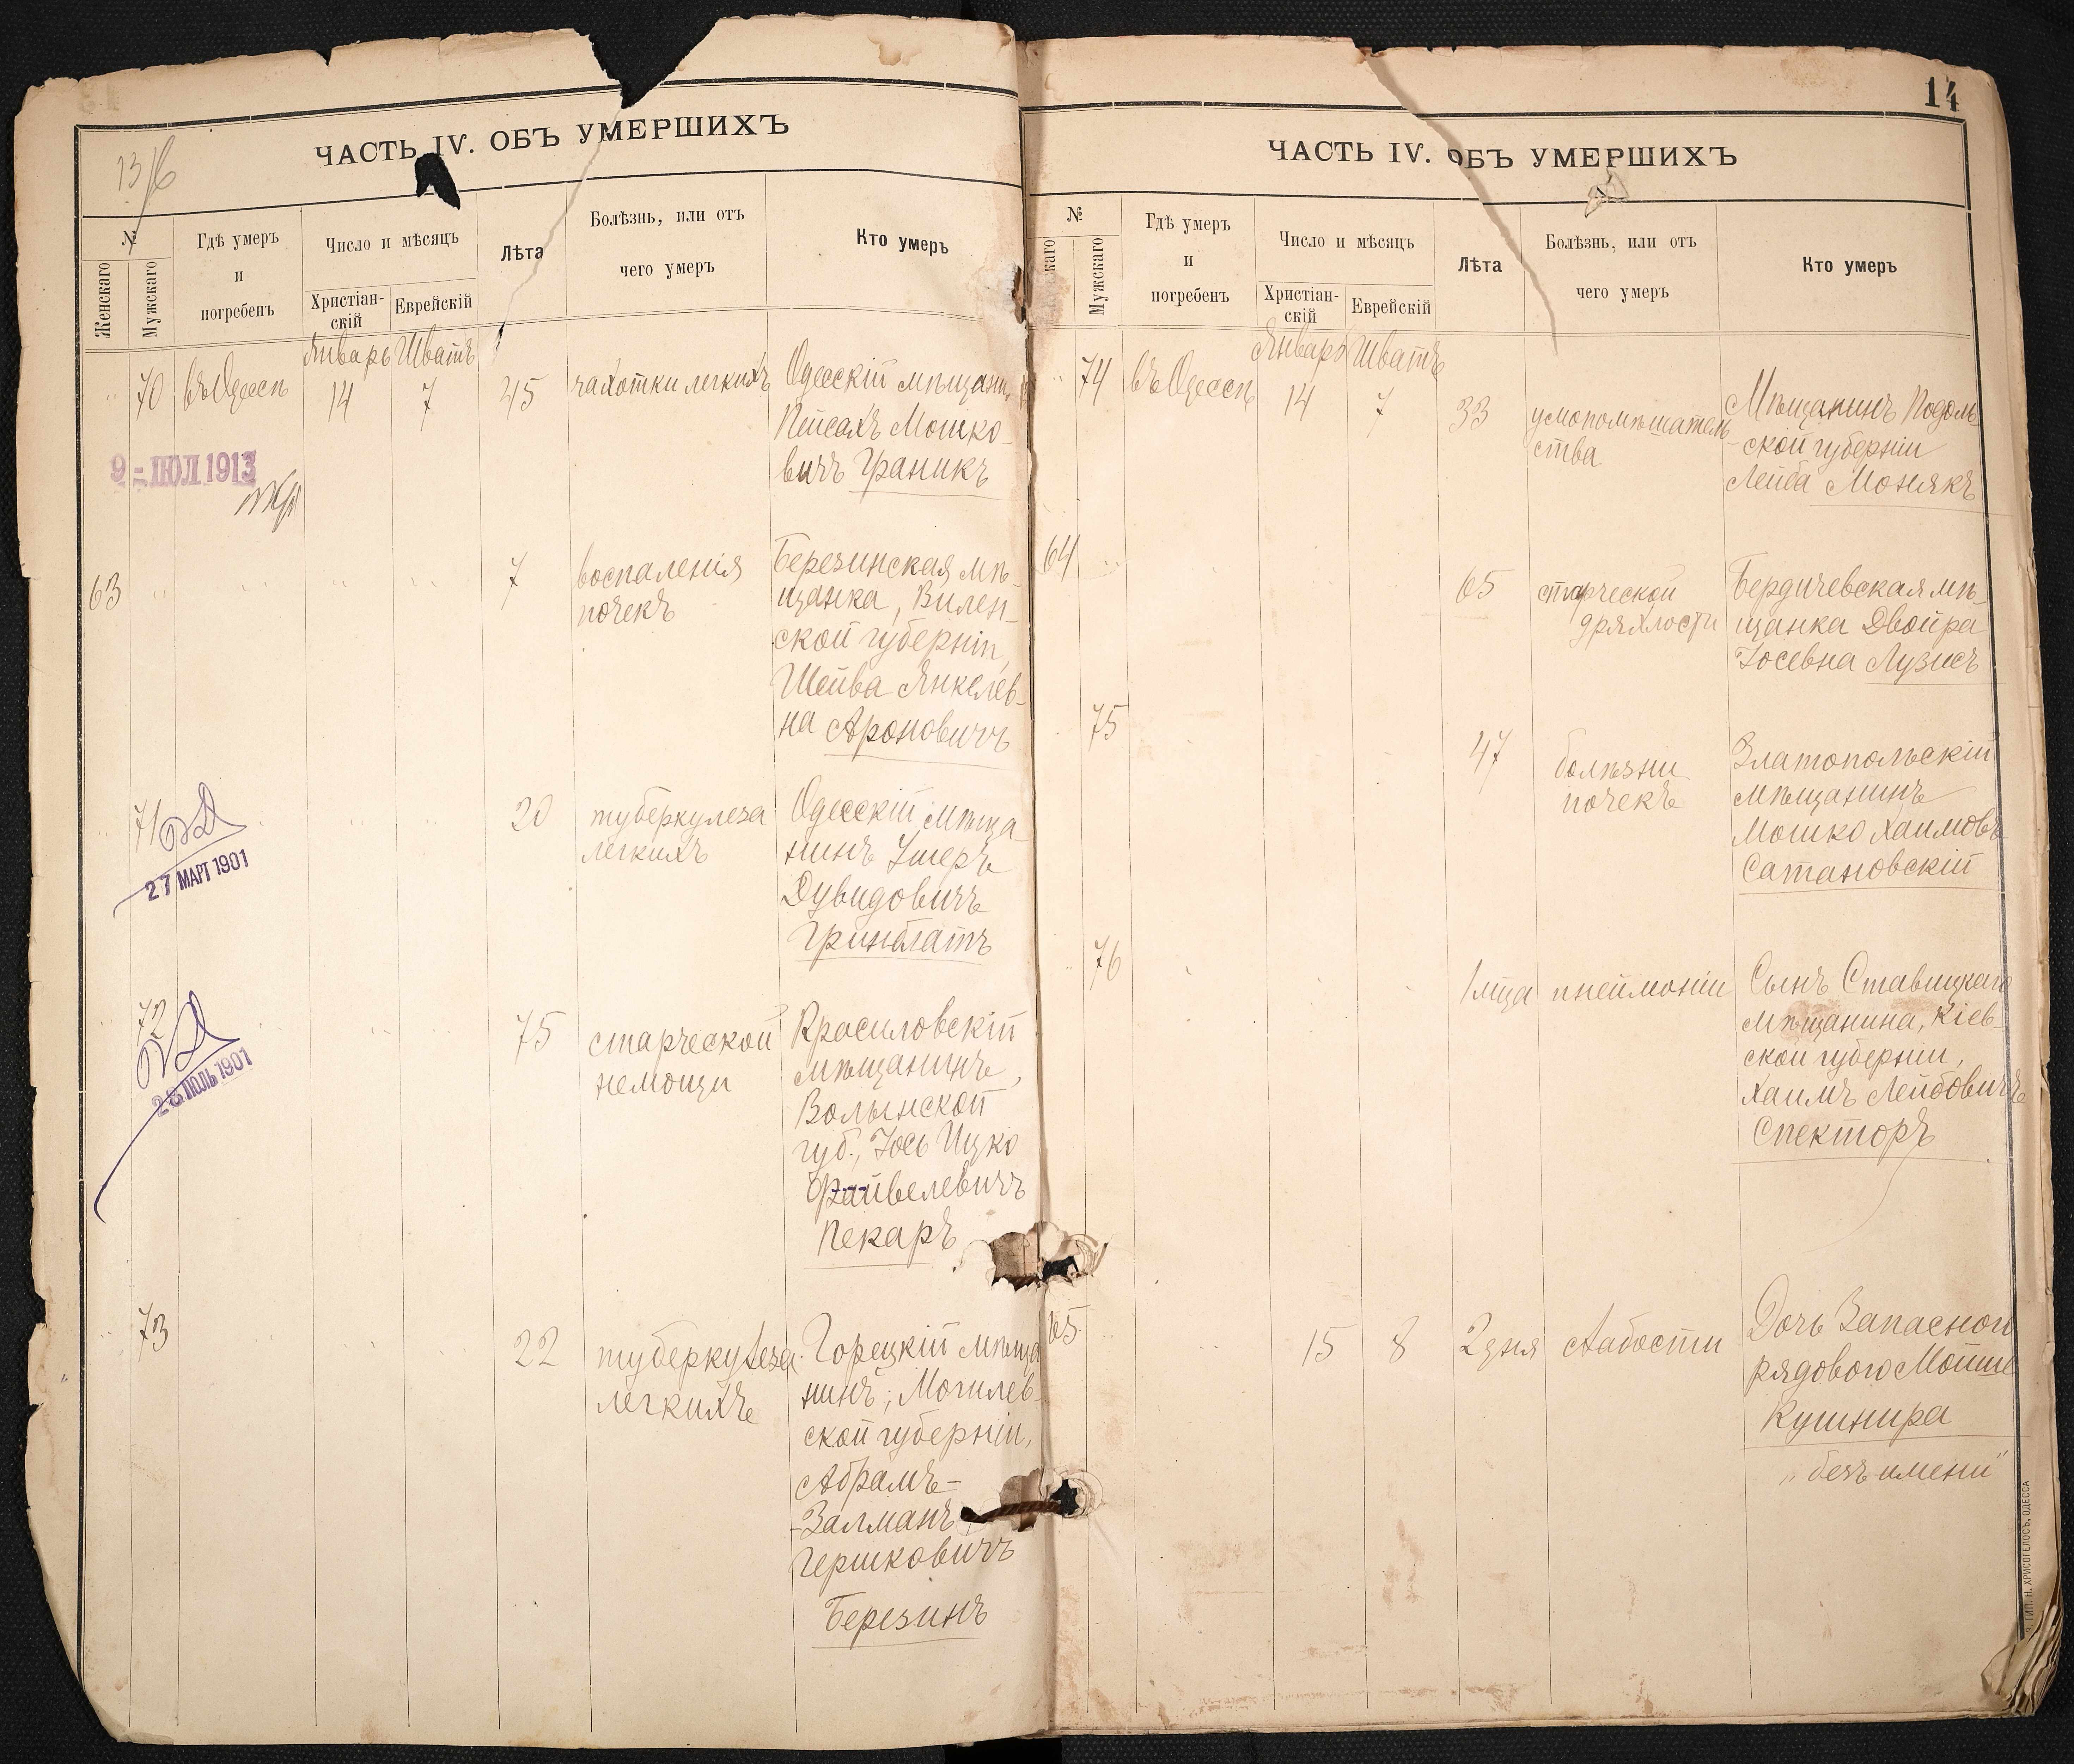 13/6
ЧАСТЬ IV. ОБЪ УМЕРШИХЪ
№
Женскаго
Мужскаго
Гдѣ умеръ
и
погребенъ
Число и мѣсяцъ
Христіан-
скій
Еврейскій
Лѣта
Болѣзнь, или отъ
чего умеръ
Кто умеръ
Январь
Шватъ
70
въ Одессѣ
14
7
45
чахотки легкихъ
Одесскій мѣщанин
Пейсахъ Мошко-
вичъ Граникъ
9 - ІЮЛ 1913
63
7
воспаленія
почекъ
Березинская мѣ-
щанка, Вилен-
ской губерніи,
Шейва Янкелев-
на Ароновичъ
71
27 МАРТ 1901
20
туберкулеза
легкихъ
Одесскій мѣща
нинъ Ушеръ
Дувидовичъ
Гринблатъ
72
ІЮЛЬ 1901
75
старческой
немощи
Красиловскій
мѣщанинъ,
Волынской
губ., Іось Ицко
Файвелевичъ
Пекаръ
73
22
туберкулеза
легкихъ
Горецкій мѣща
нинъ, Могилев-
ской губерніи,
Абрамъ-
-Залманъ
Гершковичъ
Березинъ
14
ЧАСТЬ IV. ОБЪ УМЕРШИХЪ
№
Мужскаго
Гдѣ умеръ
и
погребенъ
Число и мѣсяцъ
Христіан-
скій
Еврейскій
Лѣта
Болѣзнь, или отъ
чего умеръ
Кто умеръ
Январь
Шватъ
74
въ Одессѣ
14
7
33
умопомѣшатель-
ства
Мѣщанинъ Подоль
-ской губерніи
Лейба Монякъ
64
65
старческой
дряхлости
Бердичевская мѣ-
щанка Двойра
Іосевна Лузисъ
75
47
болѣзни
почекъ
Златопольскій
мѣщанинъ
Мошко Хаимовъ
Сатановскій
76
1 мца
пнеймоніи
Сынъ Ставищкаго
мѣщанина, Кіев-
ской губерніи,
Хаимъ Лейбовичъ
Спекторъ
65
15
8
2 дня
слабости
Дочь Запасного
рядового Мойше
Кушнира
„безъ имени"
ТИП. Н. ХРИСОГЕЛОСЪ, ОДЕССА